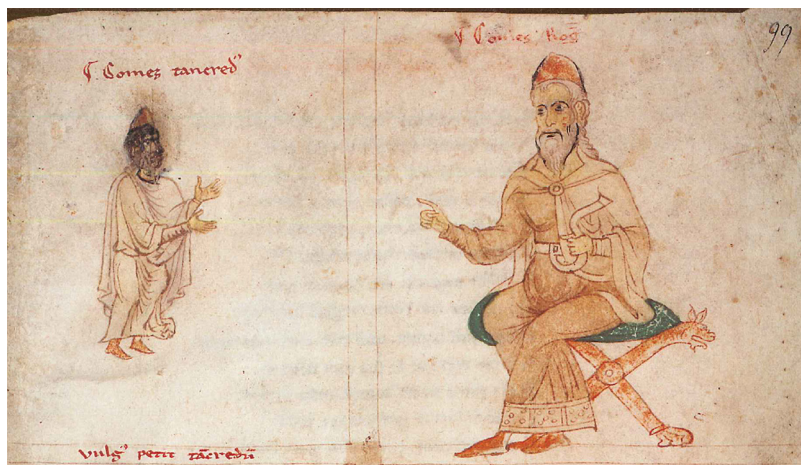 ¶ Comes tancred᾽
¶ Comes Rog̅
99
vulg᾽ petit ta̅credu̅